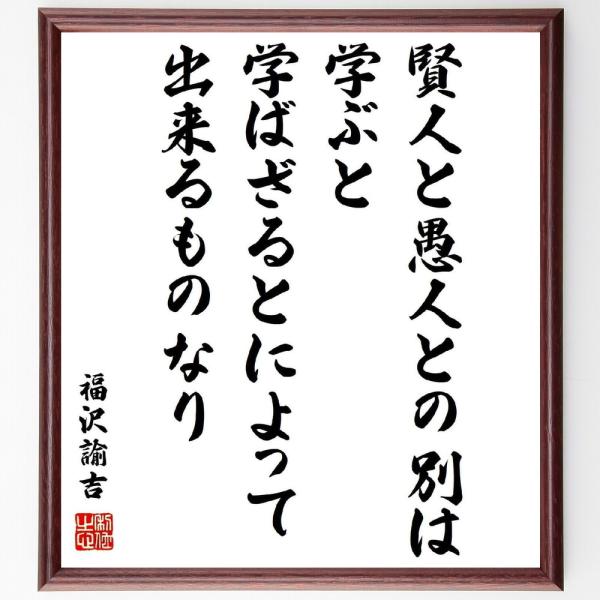 賢人と愚人との別は
学ぶと
学ばざるとによって
出来るものなり
福沢諭吉